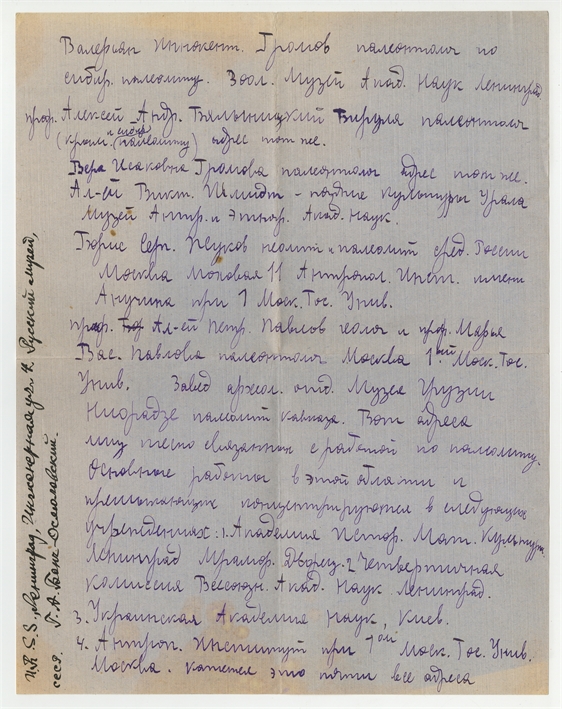 Валериан Иннокент. Громов палеонтолог по
сибир. палеолиту. Зоол. Музей Акад. Наук Ленинград
проф. Алексей Андр. Бялыницкий Бируля палеонтолог
(крым. палеолиту) адрес тот же.
Вера Исаковна Громова палеонтолог адрес тот же.
Ал-ей Викт. Шмидт - поздние культуры Урала
Музей Антр. и Этногр. Акад. Наук.
Борис Серг. Жуков неолит и палеолит сред. России
Москва Моховая 11 Антропол. Инст. имени
Анучина при 1 Моск. Гос. Унив.
проф. Ал-ей Петр. Павлов геолог и проф. Марья
Вас. Павлова палеонтолог Москва 1ый Моск. Гос.
Унив. Завед археол. отд. Музея Грузии
Ниорадзе палеолит кавказа. Вот адреса
лиц тесно связанных с работой по палеолиту.
Основные работы в этой области и
концентрируются в следующих
учреждениях: 1. Академия Истор. Мат. Культуры.
Ленинград Мрамор. Дворец. 2 Четвертичная
комиссия Всесоюзн. Акад. Наук Ленинград.
3. Украинская Академия Наук, Киев.
4. Антроп. Институт при 1ой Моск. Гос. Унив.
Москва. кажется это почти все адреса
Ленинград, Инженерная ул. 4, Русский музей,
Г. А. Бонч-Осмоловский.
СССР.